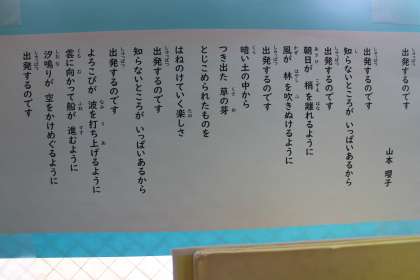 出発するのです
山本 瓔子
出発するのです
知らないところが いっぱいあるから
出発するのです
朝日が 梢を離れるように
風が 林を吹きぬけるように
出発するのです
暗い土の中から
つき出た 草の芽
とじこめられたものを
はねのけていく楽しさ
出発するのです
知らないところが いっぱいあるから
出発するのです
よろこびが 波を打ち上げるように
雲に向かって船が 進むように
汐鳴りが 空をかけめぐるように
出発するのです